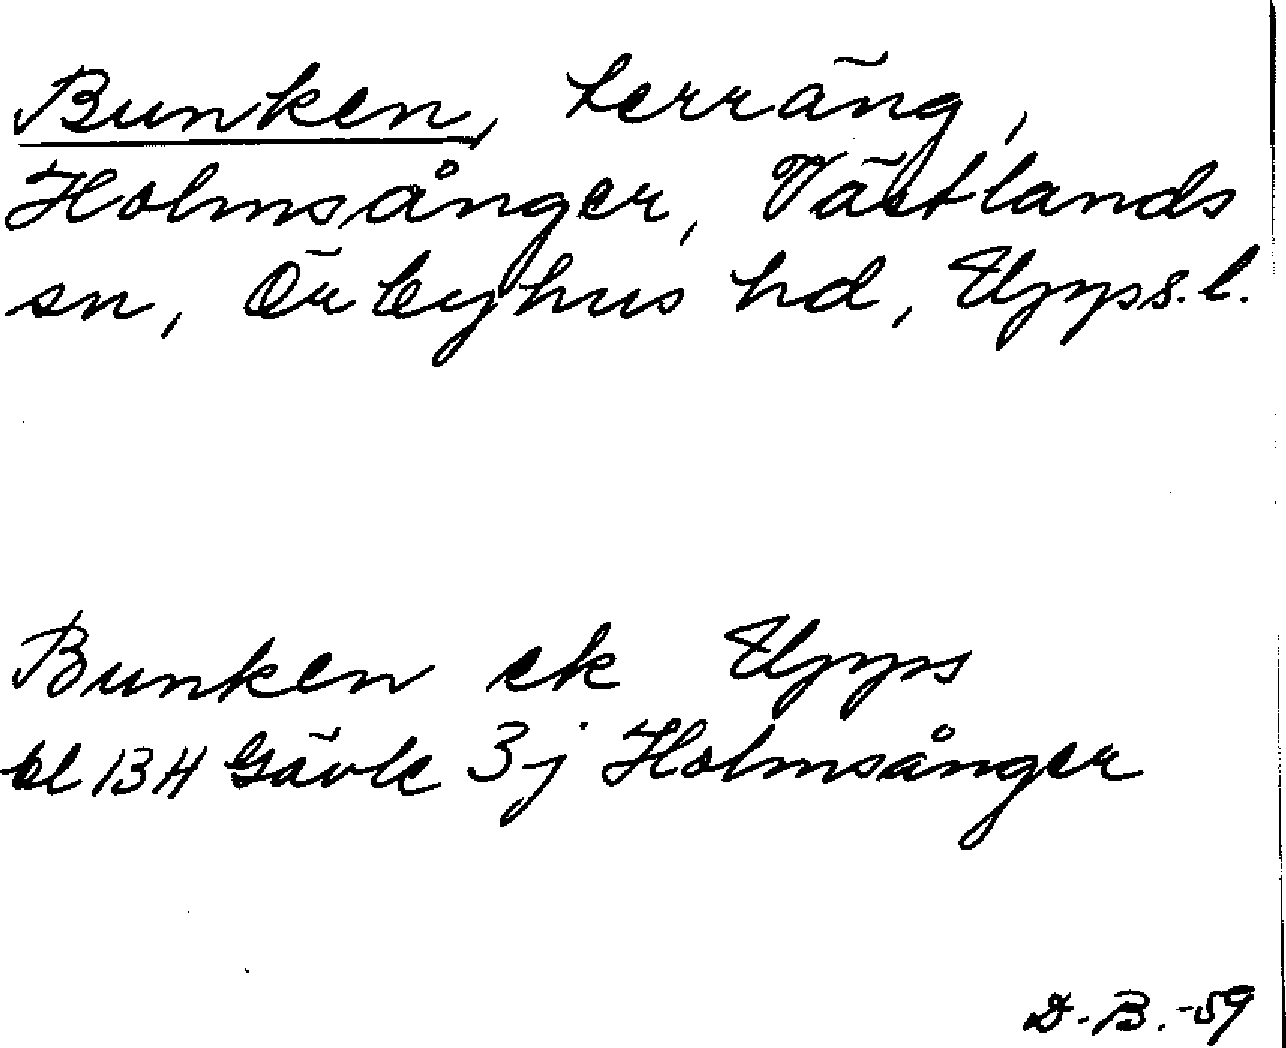 Bunken, terräng,
Holmsånger, Västlands
sn, Örbyhus hd, Upps.l.
Bunken ek Upps
bl 13 H Gävle 3j Holmsånger
D.B.-59